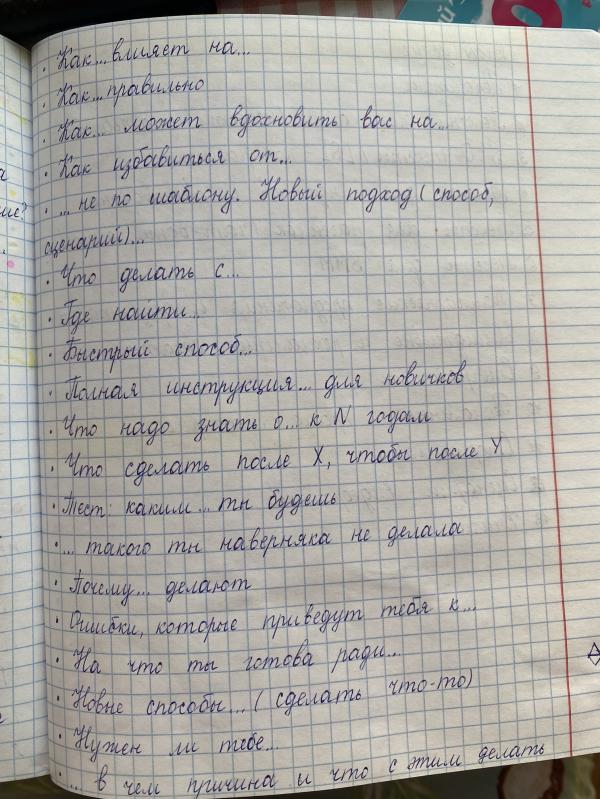 · Как... влияет на...
· Как... правильно
· Как... может вдохновить вас на...
· Как избавиться от...
· ... не по шаблону. Новый подход (способ,
сценарий)...
· Что делать с...
· Где найти...
· Быстрый способ...
· Полная инструкция... для новичков
· Что надо знать о... к N годам
· Что сделать после X, чтобы после Y
· Тест: каким... ты будешь
· ... такого ты наверняка не делала
· Почему... делают
· Ошибки, которые приведут тебя к...
· На что ты готова ради...
· Новые способы... (сделать что-то)
· Нужен ли тебе...
· ... в чем причина и что с этим делать